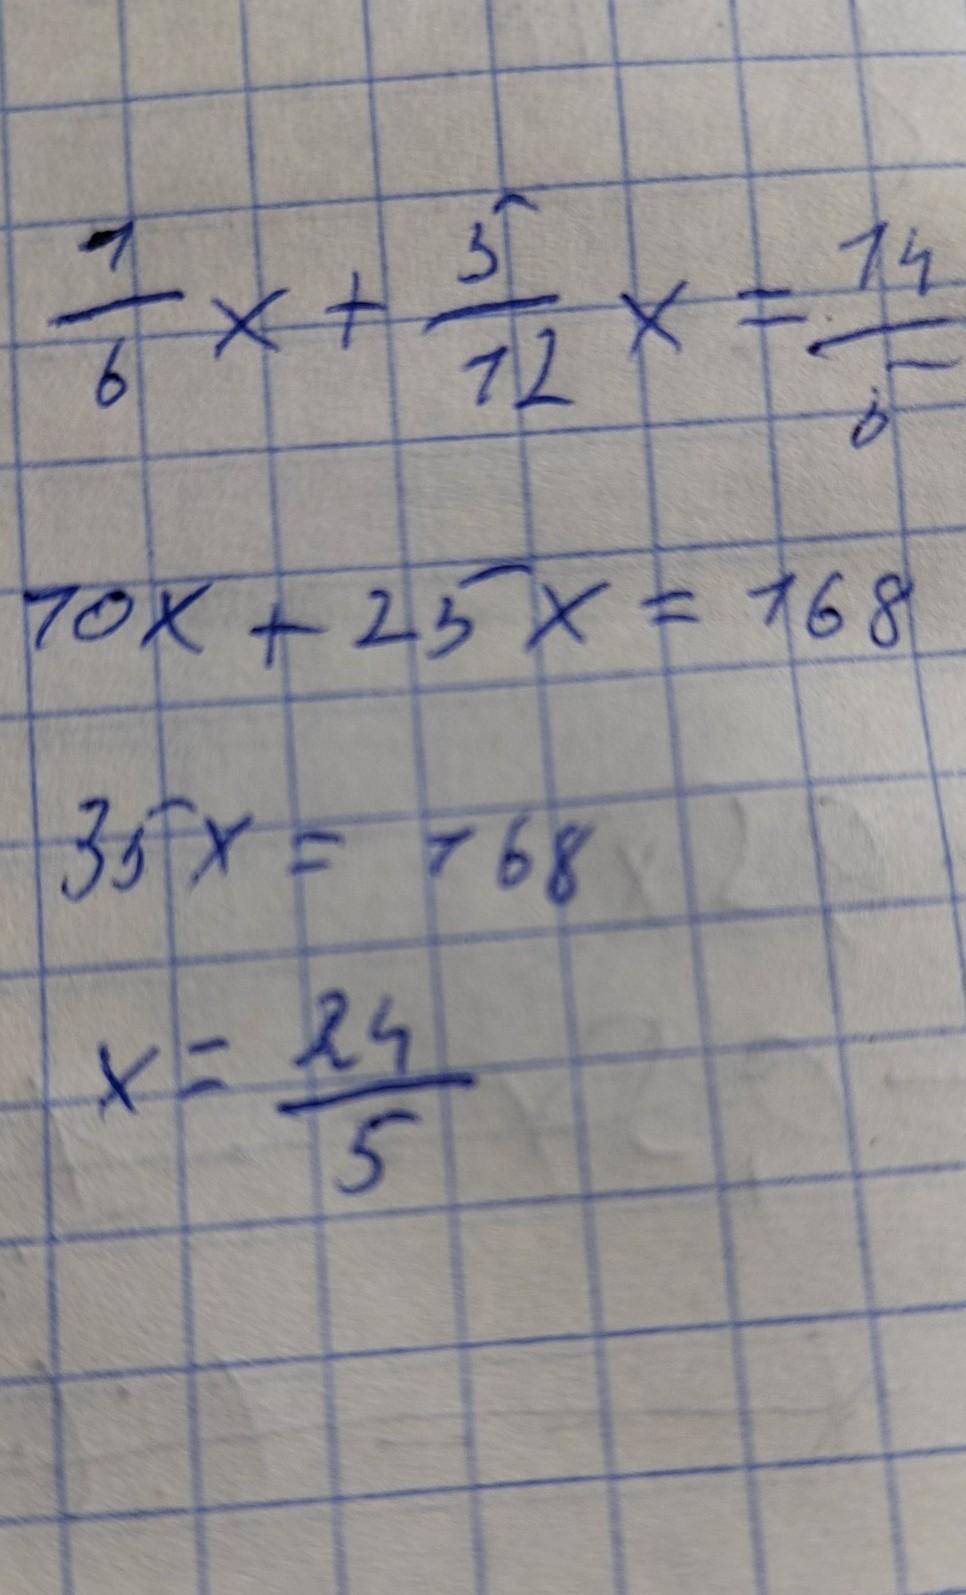 1/6 x + 5/12 x = 14/5
10x + 25x = 168
35x = 168
x = 24/5